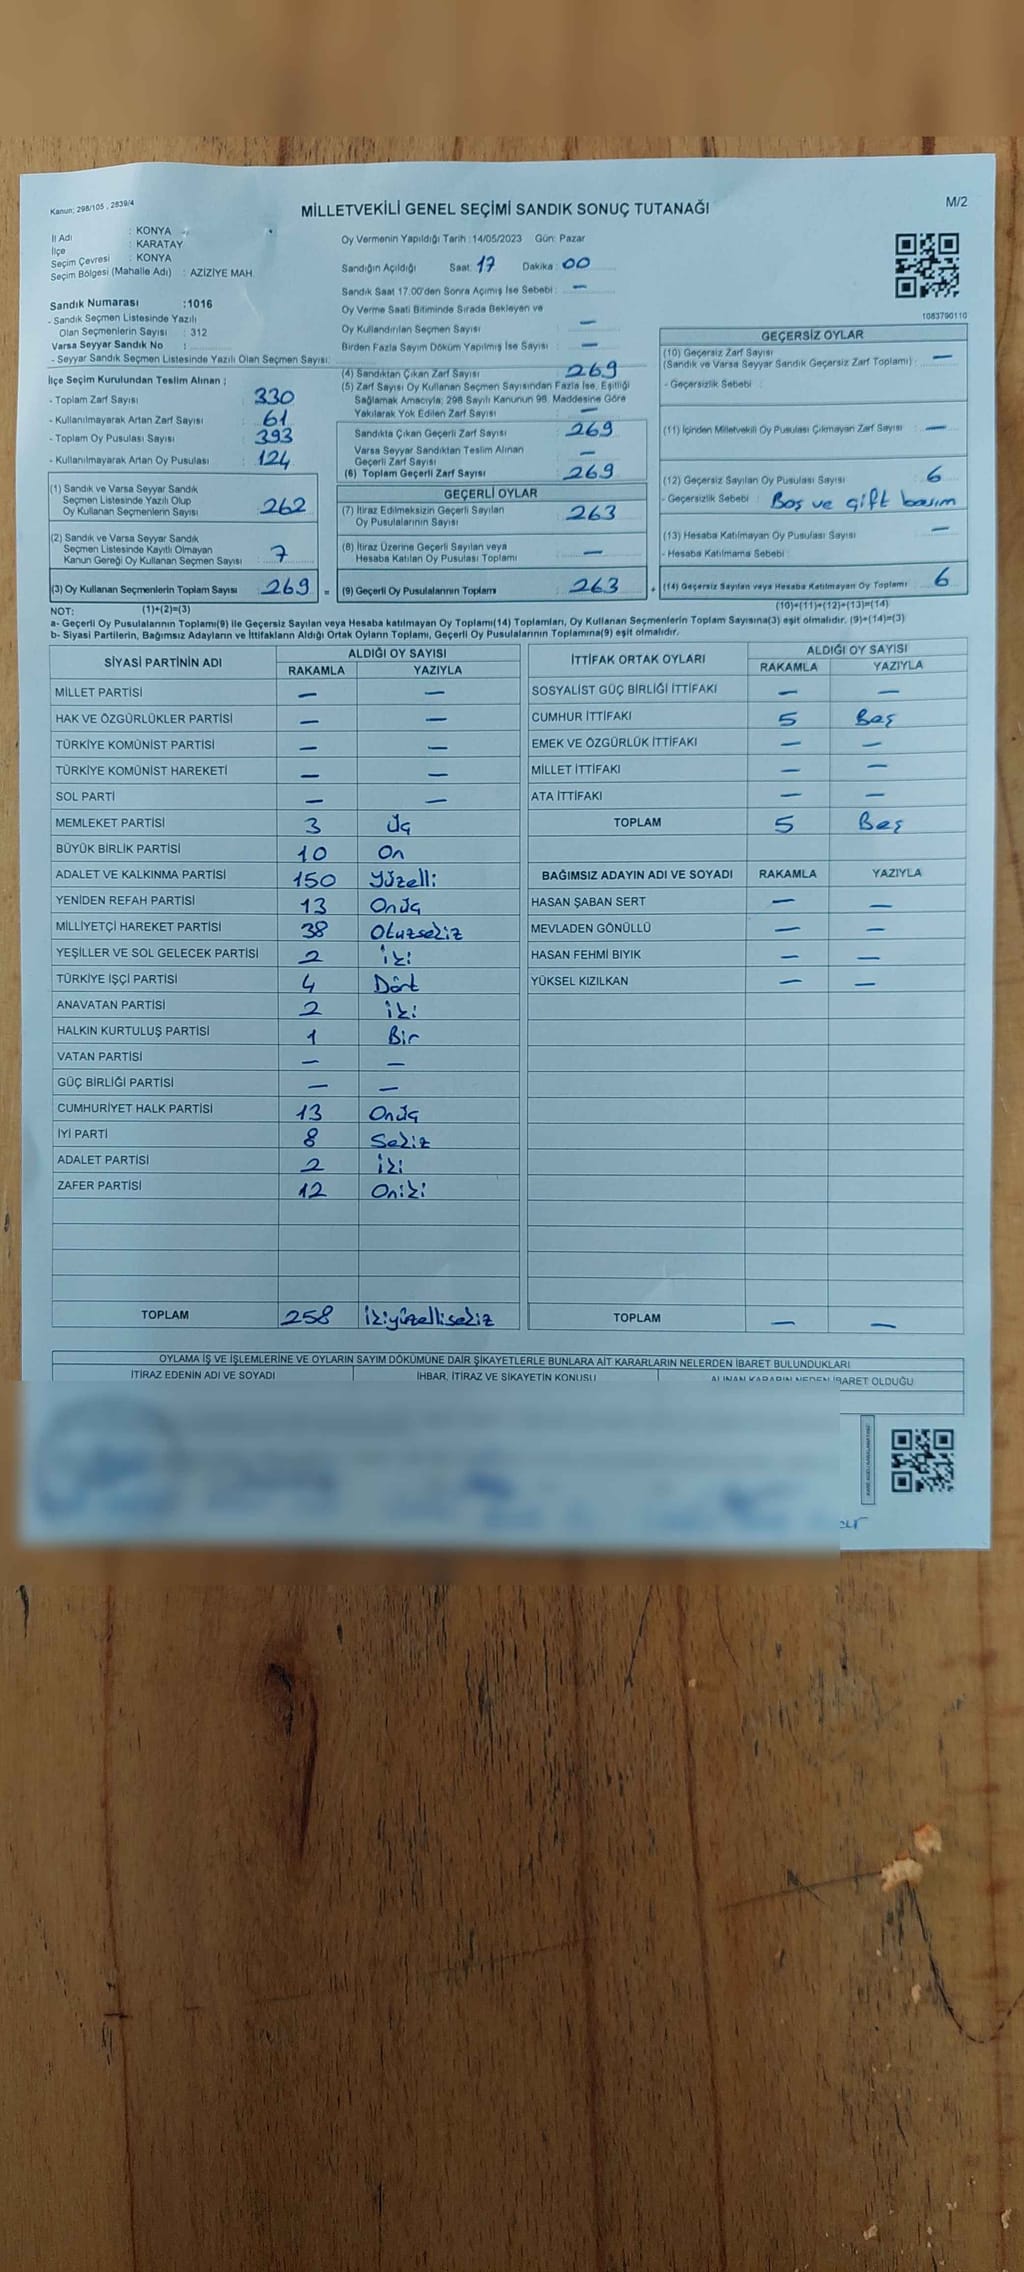 Kanun; 298/105 , 2839/4
MİLLETVEKİLİ GENEL SEÇİMİ SANDIK SONUÇ TUTANAĞI
M/2
İl Adı : KONYA
İlçe : KARATAY
Seçim Çevresi : KONYA
Seçim Bölgesi (Mahalle Adı) : AZİZİYE MAH.
Sandık Numarası :1016
- Sandık Seçmen Listesinde Yazılı
Olan Seçmenlerin Sayısı : 312
Varsa Seyyar Sandık No :
- Seyyar Sandık Seçmen Listesinde Yazılı Olan Seçmen Sayısı:
Oy Vermenin Yapıldığı Tarih :14/05/2023 Gün: Pazar
Sandığın Açıldığı Saat: 17 Dakika : 00
Sandık Saat 17.00'den Sonra Açımış İse Sebebi : —
Oy Verme Saati Bitiminde Sırada Bekleyen ve
Oy Kullandırılan Seçmen Sayısı : —
Birden Fazla Sayım Döküm Yapılmış İse Sayısı : —
1083790110
İlçe Seçim Kurulundan Teslim Alınan ;
- Toplam Zarf Sayısı : 330
- Kullanılmayarak Artan Zarf Sayısı : 61
- Toplam Oy Pusulası Sayısı : 393
- Kullanılmayarak Artan Oy Pusulası : 124
(1) Sandık ve Varsa Seyyar Sandık
Seçmen Listesinde Yazılı Olup
Oy Kullanan Seçmenlerin Sayısı : 262
(2) Sandık ve Varsa Seyyar Sandık
Seçmen Listesinde Kayıtlı Olmayan
Kanun Gereği Oy Kullanan Seçmen Sayısı : 7
(3) Oy Kullanan Seçmenlerin Toplam Sayısı : 269 =
(4) Sandıktan Çıkan Zarf Sayısı : 269
(5) Zarf Sayısı Oy Kullanan Seçmen Sayısından Fazla İse, Eşitliği
Sağlamak Amacıyla; 298 Sayılı Kanunun 98. Maddesine Göre
Yakılarak Yok Edilen Zarf Sayısı : —
Sandıkta Çıkan Geçerli Zarf Sayısı : 269
Varsa Seyyar Sandıktan Teslim Alınan
Geçerli Zarf Sayısı : —
(6) Toplam Geçerli Zarf Sayısı : 269
GEÇERLİ OYLAR
(7) İtiraz Edilmeksizin Geçerli Sayılan
Oy Pusulalarının Sayısı : 263
(8) İtiraz Üzerine Geçerli Sayılan veya
Hesaba Katılan Oy Pusulası Toplamı : —
(9) Geçerli Oy Pusulalarının Toplamı : 263 +
GEÇERSİZ OYLAR
(10) Geçersiz Zarf Sayısı
(Sandık ve Varsa Seyyar Sandık Geçersiz Zarf Toplamı) : —
- Geçersizlik Sebebi :
(11) İçinden Milletvekili Oy Pusulası Çıkmayan Zarf Sayısı : —
(12) Geçersiz Sayılan Oy Pusulası Sayısı : 6
- Geçersizlik Sebebi : Boş ve çift basım
(13) Hesaba Katılmayan Oy Pusulası Sayısı : —
- Hesaba Katılmama Sebebi :
(14) Geçersiz Sayılan veya Hesaba Katılmayan Oy Toplamı : 6
NOT: (1)+(2)=(3) (10)+(11)+(12)+(13)=(14)
a- Geçerli Oy Pusulalarının Toplamı(9) ile Geçersiz Sayılan veya Hesaba katılmayan Oy Toplamı(14) Toplamları, Oy Kullanan Seçmenlerin Toplam Sayısına(3) eşit olmalıdır. (9)+(14)=(3)
b- Siyasi Partilerin, Bağımsız Adayların ve İttifakların Aldığı Ortak Oyların Toplamı, Geçerli Oy Pusulalarının Toplamına(9) eşit olmalıdır.
SİYASİ PARTİNİN ADI ALDIĞI OY SAYISI
RAKAMLA YAZIYLA
MİLLET PARTİSİ — —
HAK VE ÖZGÜRLÜKLER PARTİSİ — —
TÜRKİYE KOMÜNİST PARTİSİ — —
TÜRKİYE KOMÜNİST HAREKETİ — —
SOL PARTİ — —
MEMLEKET PARTİSİ 3 Üç
BÜYÜK BİRLİK PARTİSİ 10 On
ADALET VE KALKINMA PARTİSİ 150 Yüzelli
YENİDEN REFAH PARTİSİ 13 Onüç
MİLLİYETÇİ HAREKET PARTİSİ 38 Otuzsekiz
YEŞİLLER VE SOL GELECEK PARTİSİ 2 İki
TÜRKİYE İŞÇİ PARTİSİ 4 Dört
ANAVATAN PARTİSİ 2 İki
HALKIN KURTULUŞ PARTİSİ 1 Bir
VATAN PARTİSİ — —
GÜÇ BİRLİĞİ PARTİSİ — —
CUMHURİYET HALK PARTİSİ 13 Onüç
İYİ PARTİ 8 Sekiz
ADALET PARTİSİ 2 İki
ZAFER PARTİSİ 12 Oniki
TOPLAM 258 İkiyüzellisekiz
İTTİFAK ORTAK OYLARI ALDIĞI OY SAYISI
RAKAMLA YAZIYLA
SOSYALİST GÜÇ BİRLİĞİ İTTİFAKI — —
CUMHUR İTTİFAKI 5 Beş
EMEK VE ÖZGÜRLÜK İTTİFAKI — —
MİLLET İTTİFAKI — —
ATA İTTİFAKI — —
TOPLAM 5 Beş
BAĞIMSIZ ADAYIN ADI VE SOYADI RAKAMLA YAZIYLA
HASAN ŞABAN SERT — —
MEVLADEN GÖNÜLLÜ — —
HASAN FEHMİ BIYIK — —
YÜKSEL KIZILKAN — —
TOPLAM — —
OYLAMA İŞ VE İŞLEMLERİNE VE OYLARIN SAYIM DÖKÜMÜNE DAİR ŞİKAYETLERLE BUNLARA AİT KARARLARIN NELERDEN İBARET BULUNDUKLARI
İTİRAZ EDENİN ADI VE SOYADI İHBAR, İTİRAZ VE ŞİKAYETİN KONUSU ALINAN KARARIN NEDEN İBARET OLDUĞU